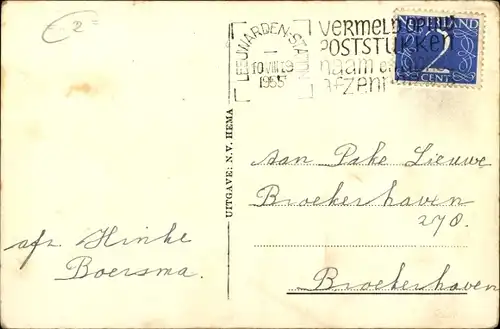 2=
LEEUWARDEN-STATION
10 VIII 19
1955
VERMELD OP UW
POSTSTUKKEN
naam en
afzen
NEDERLAND
2
CENT
UITGAVE: N.V. HEMA
aan Pake Lieuwe
Broekerhaven
278.
Broekerhaven
afz. Hinke
Boersma.